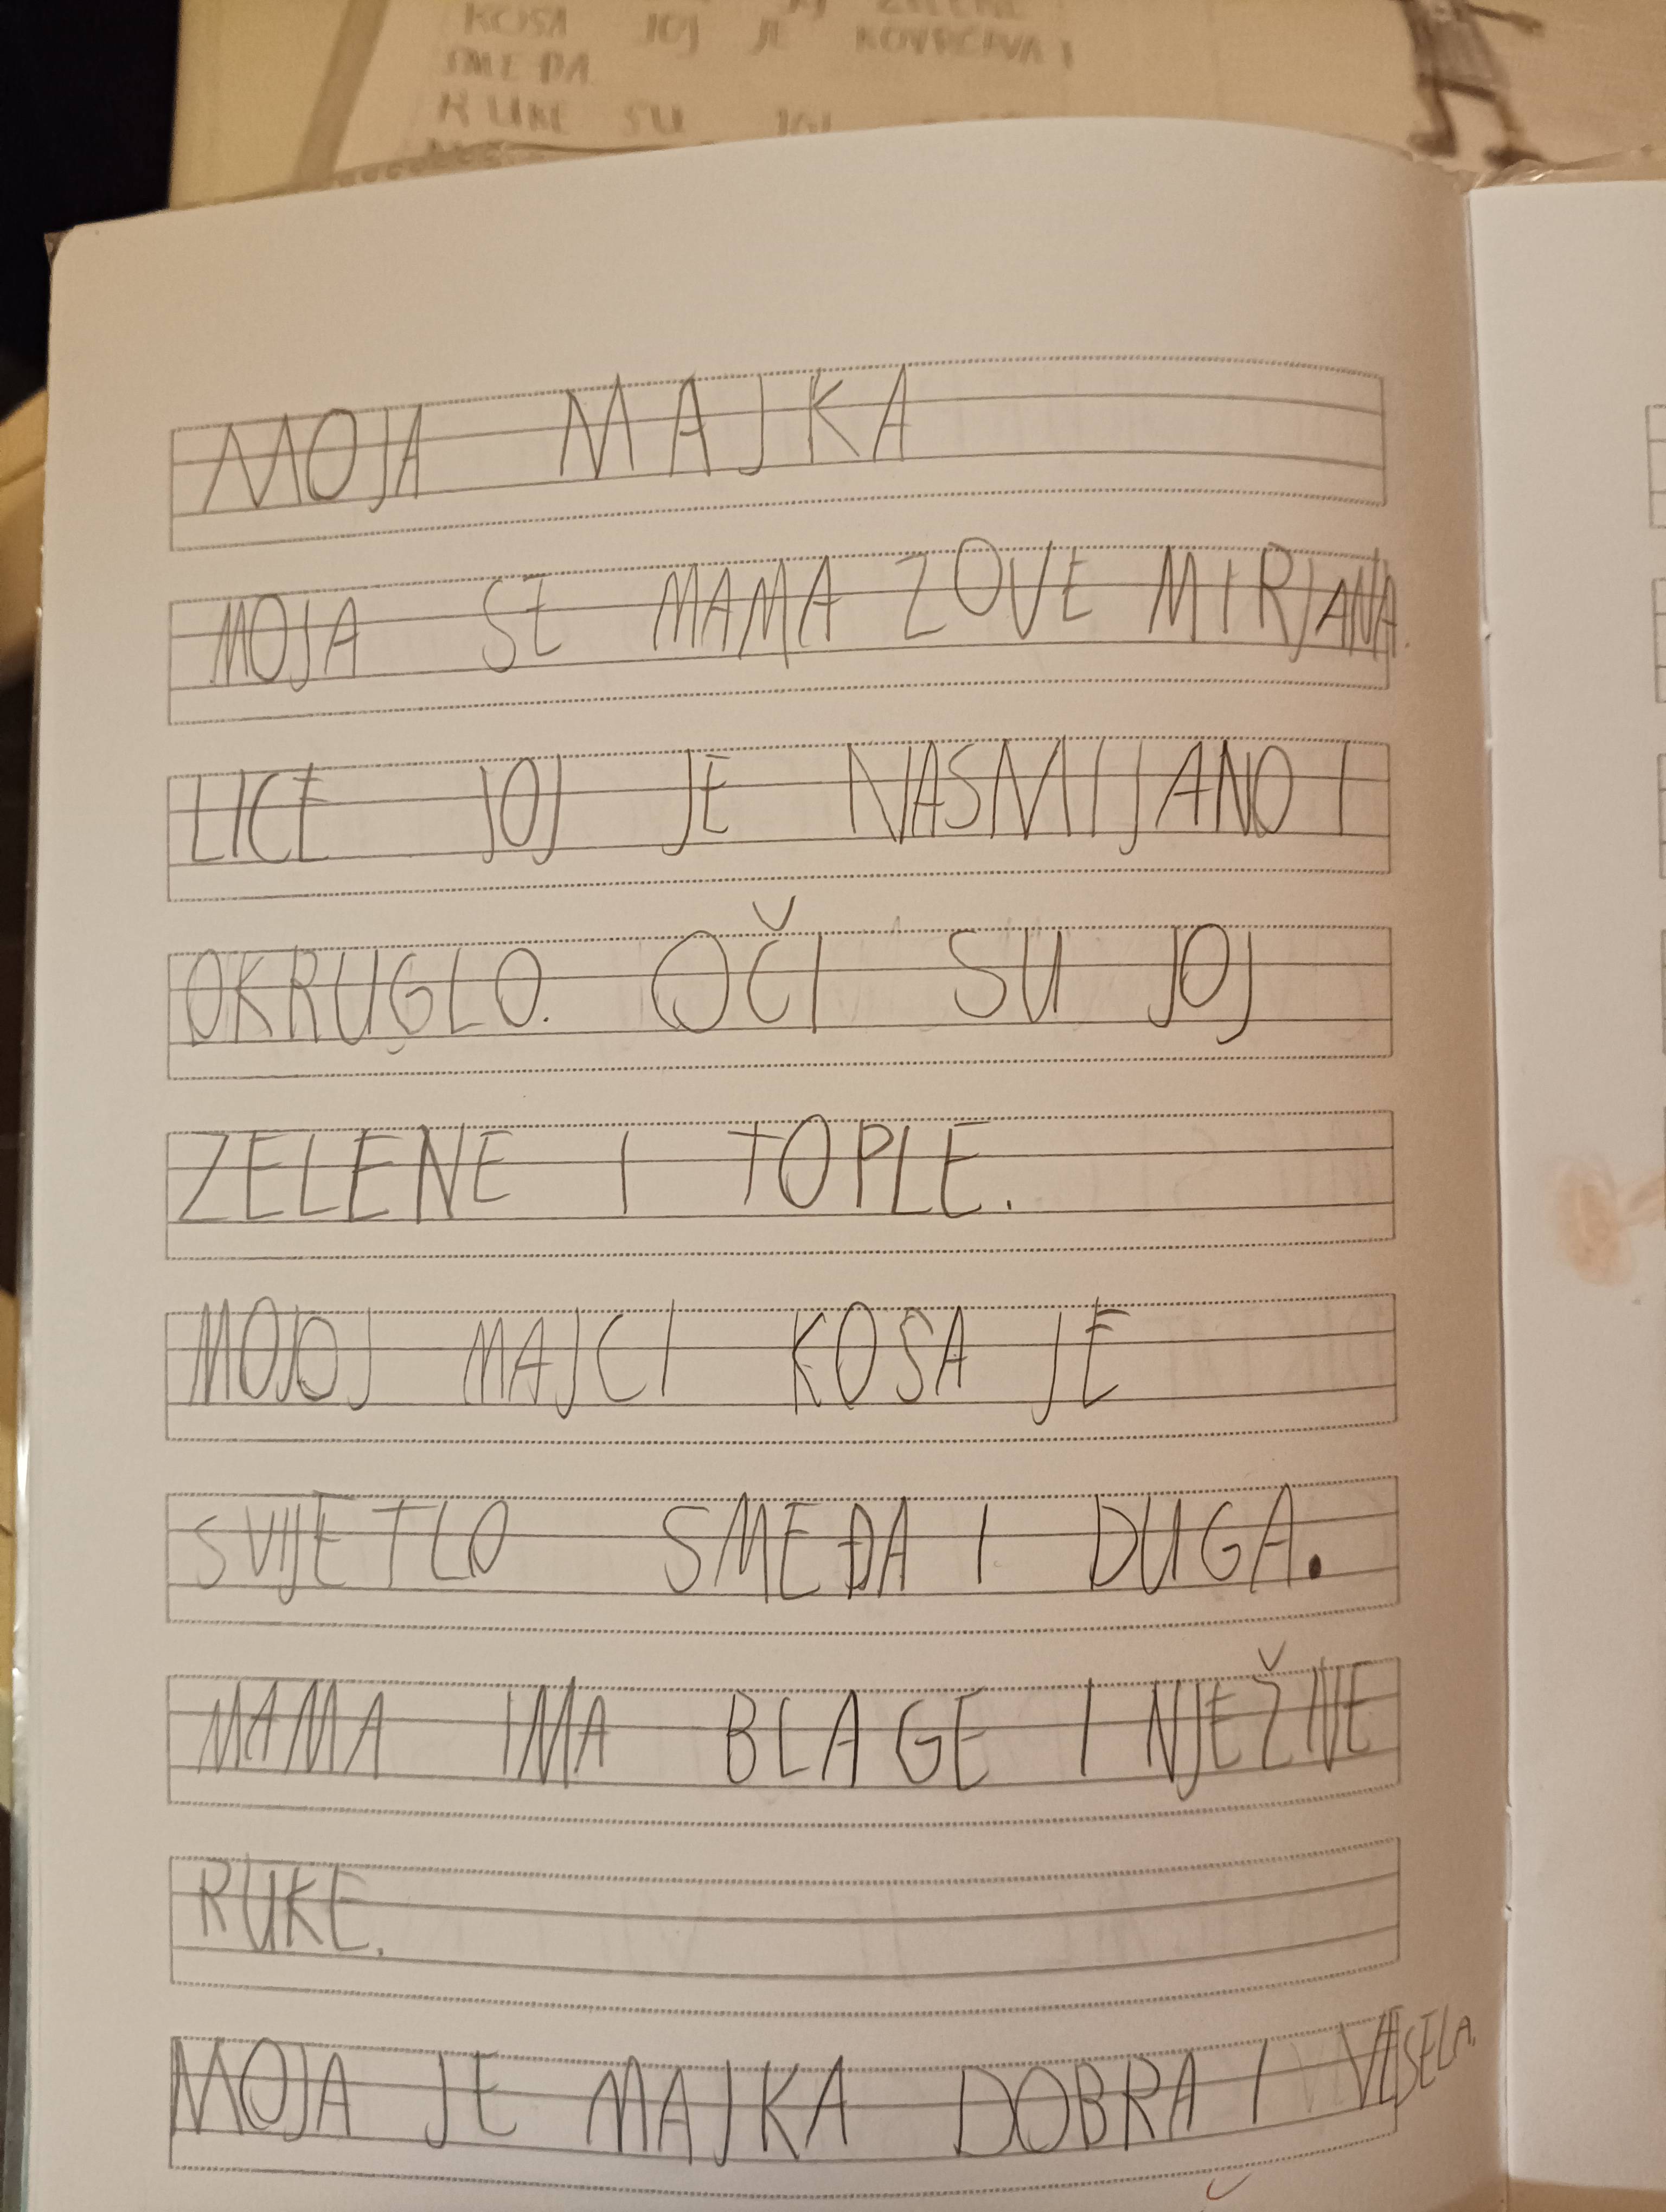 KOSA JOJ JE KOVRČAVA I
SMEĐA
RUKE SU JOJ
MOJA MAJKA
MOJA SE MAMA ZOVE MIRJANA.
LICE JOJ JE NASMIJANO I
OKRUGLO. OČI SU JOJ
ZELENE I TOPLE.
MOJOJ MAJCI KOSA JE
SVIJETLO SMEĐA I DUGA.
MAMA IMA BLAGE I NJEŽNE
RUKE.
MOJA JE MAJKA DOBRA I VESELA.